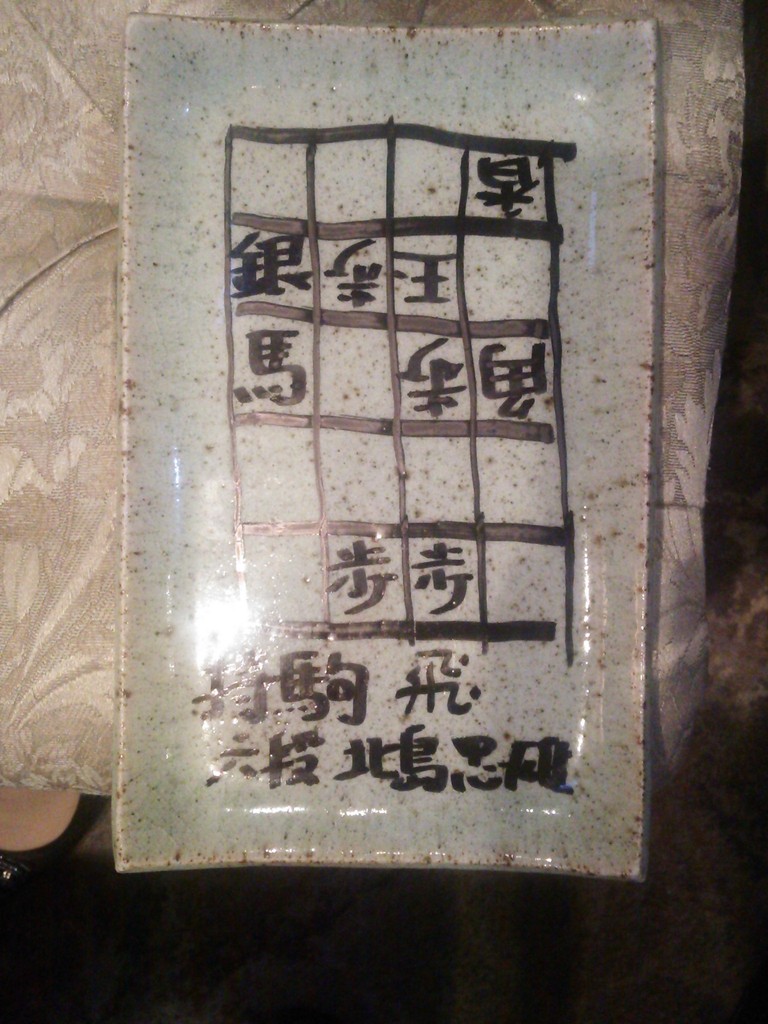 香
歩 王
馬 歩 角
歩 歩
持駒 飛
六段 北島忠雄